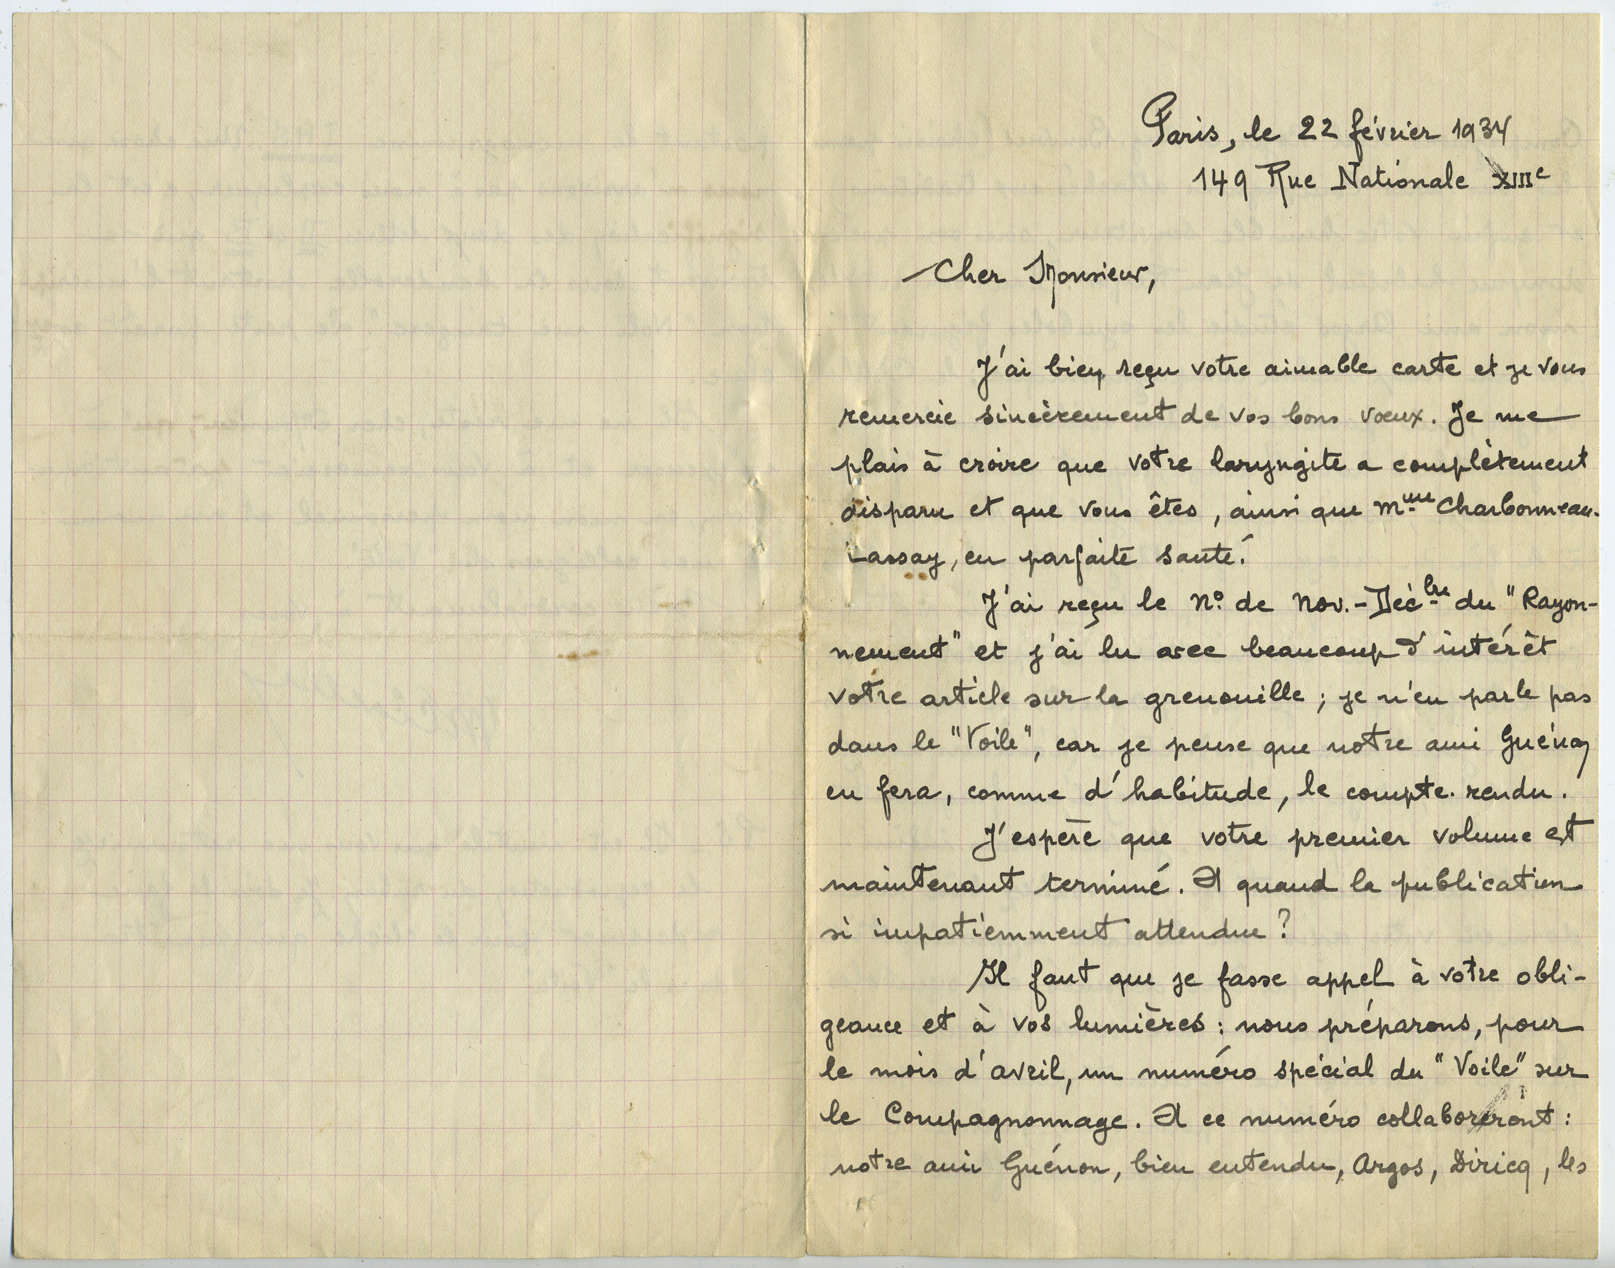 Paris, le 22 février 1934
149 Rue Nationale XIIIe
Cher Monsieur,
J'ai bien reçu votre aimable carte et je vous
remercie sincèrement de vos bons vœux. Je me
plais à croire que votre laryngite a complètement
disparu et que vous êtes, ainsi que Mme Charbonneau-
Lassay, en parfaite santé.
J'ai reçu le No de Nov.-Décbre du "Rayon-
nement" et j'ai lu avec beaucoup d'intérêt
votre article sur la grenouille ; je n'en parle pas
dans le "Voile", car je pense que notre ami Guénon
en fera, comme d'habitude, le compte-rendu.
J'espère que votre premier volume est
maintenant terminé. A quand la publication
si impatiemment attendue ?
Il faut que je fasse appel à votre obli-
geance et à vos lumières : nous préparons, pour
le mois d'avril, un numéro spécial du "Voile" sur
le Compagnonnage. A ce numéro collaboreront :
notre ami Guénon, bien entendu, Argos, Diricq, les